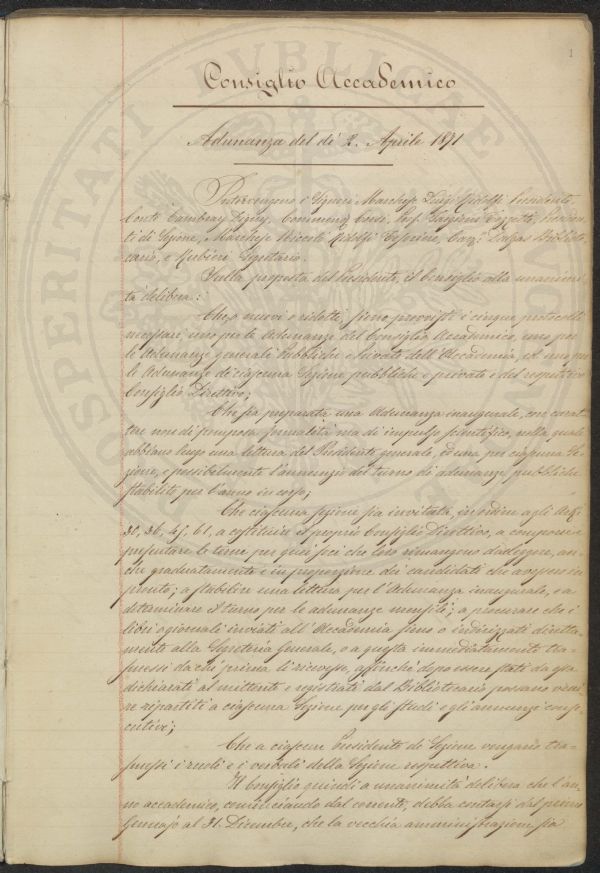 1
Consiglio Accademico
Adunanza del dì 2. Aprile 1871
Intervengono i Signori Marchese Luigi Ridolfi Presidente,
Conte Cambray Digny, Comm. Corsi, Prof. Targioni Tozzetti, Presiden-
ti di Sezione, Marchese Niccolò Ridolfi Cassiere, Cav. Bibliote-
cario, e Rubieri Segretario.
Sulla proposta del Presidente, il Consiglio alla unanimi-
tà delibera:
Che, o nuovi o ridotti, sieno provvisti i cinque protocolli
necessari, uno per le Adunanze del Consiglio Accademico, uno per
le Adunanze generali Pubbliche e private dell'Accademia, ed uno per
le Adunanze di ciascuna Sezione pubbliche e private e del respettivo
Consiglio Direttivo;
Che sia preparata una Adunanza inaugurale, con carat-
tere non di pomposa formalità ma di impulso scientifico, nella quale
abbiano luogo una lettura del Presidente generale, ed una per ciascuna Se-
zione, e possibilmente l'annunzio del turno di adunanze pubbliche
stabilito per l'anno in corso;
Che ciascuna Sezione sia invitata, in ordine agli Art.i
30, 36, 45, 61, a costituire il proprio Consiglio Direttivo, a comporre e
presentare le terne per quei soci che loro rimangono da eleggere, an-
che gradatamente e in proporzione dei candidati che avessero in
pronto; a stabilire una lettura per l'Adunanza inaugurale, e a
determinare il turno per le adunanze mensili; a procurare che i
libri o giornali inviati all'Accademia sieno o indirizzati diretta-
mente alla Segreteria Generale, o a questa immediatamente tra-
smessi da chi prima li ricevesse, affinchè dopo essere stati da essa
dichiarati al mittente e registrati dal Bibliotecario possano veni-
re ripartiti a ciascuna Sezione per gli studi e gli annunzi conse-
cutivi;
Che a ciascun Presidente di Sezione vengano tra-
smessi i ruoli e i verbali della Sezione respettiva.
Il Consiglio quindi a unanimità delibera che l'an-
no accademico, cominciando dal corrente, debba contarsi dal primo
Gennajo al 31. Dicembre, che la vecchia amministrazione sia